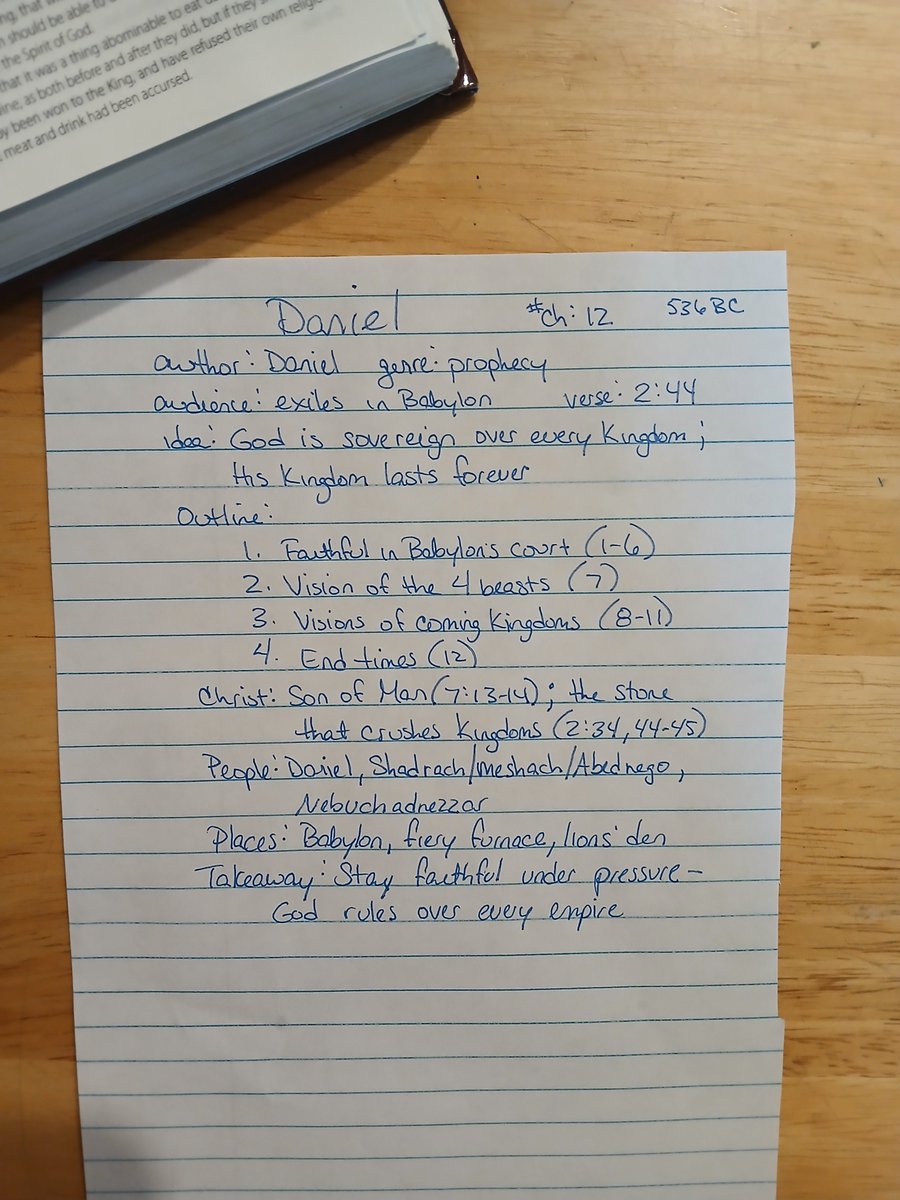 ng, that w
n should be able to
the Spirit of God.
that it was a thing abominable to eat
ine, as both before and after they did, but if they s
by been won to the King, and have refused their own religio
meat and drink had been accursed.
Daniel #ch: 12 536 BC
author: Daniel genre: prophecy
audience: exiles in Babylon verse: 2:44
idea: God is sovereign over every Kingdom;
His Kingdom lasts forever
Outline:
1. Faithful in Babylon's court (1-6)
2. Vision of the 4 beasts (7)
3. Visions of coming Kingdoms (8-11)
4. End times (12)
Christ: Son of Man (7:13-14); the stone
that crushes Kingdoms (2:34, 44-45)
People: Daniel, Shadrach/Meshach/Abednego,
Nebuchadnezzar
Places: Babylon, fiery furnace, lions' den
Takeaway: Stay faithful under pressure -
God rules over every empire